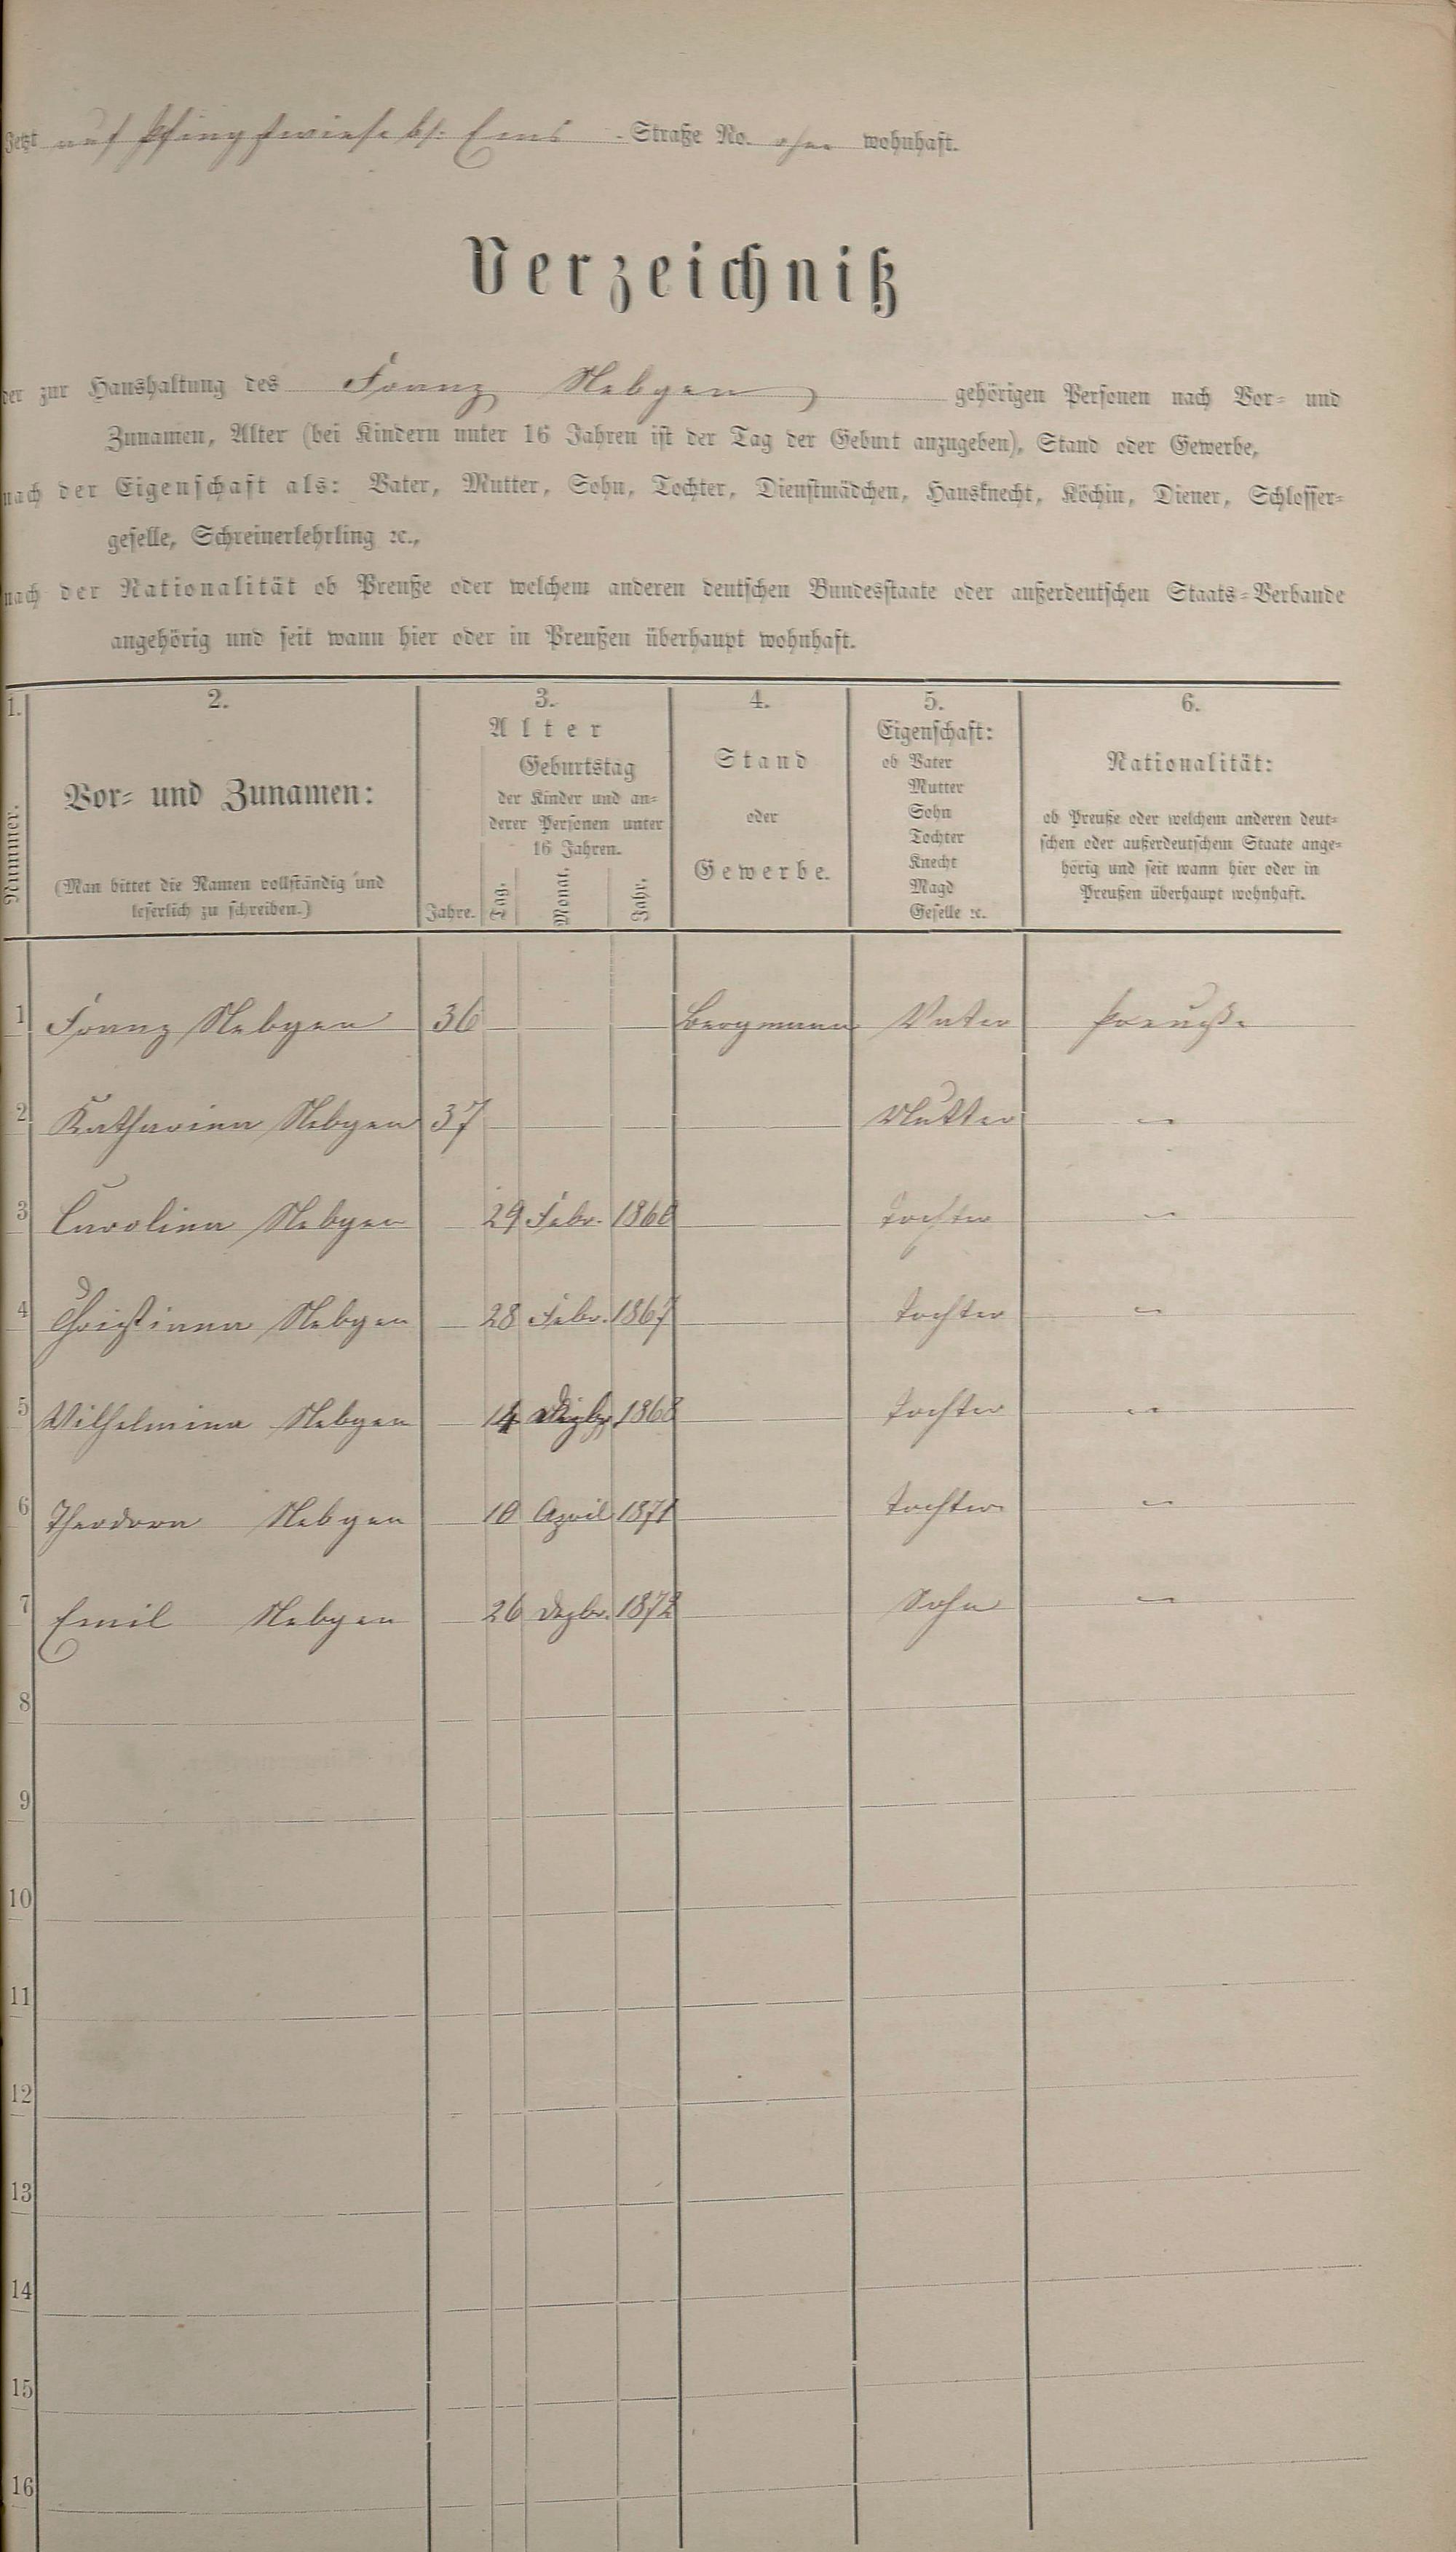 Jetzt auf Pfingstwiese bei Ems - Straße No. ohne wohnhaft.
Verzeichniß
der zur Haushaltung des Franz Nebgen gehörigen Personen nach Vor- und
Zunamen, Alter (bei Kindern unter 16 Jahren ist der Tag der Geburt anzugeben), Stand oder Gewerbe,
nach der Eigenschaft als: Vater, Mutter, Sohn, Tochter, Dienstmädchen, Hausknecht, Köchin, Diener, Schlosser-
geselle, Schreinerlehrling ꝛc.,
nach der Nationalität ob Preuße oder welchem anderen deutschen Bundesstaate oder außerdeutschen Staats-Verbande
angehörig und seit wann hier oder in Preußen überhaupt wohnhaft.
1. 2. 3. 4. 5. 6.
Nummer.
Vor- und Zunamen:
(Man bittet die Namen vollständig und
leserlich zu schreiben.)
Alter
Jahre.
Geburtstag
der Kinder und an-
derer Personen unter
16 Jahren.
Tag. Monat. Jahr.
Stand
oder
Gewerbe.
Eigenschaft:
ob Vater
Mutter
Sohn
Tochter
Knecht
Magd
Geselle ꝛc.
Nationalität:
ob Preuße oder welchem anderen deut-
schen oder außerdeutschem Staate ange-
hörig und seit wann hier oder in
Preußen überhaupt wohnhaft.
1 Franz Nebgen 36 Bergmann Vater Preuße
2 Katharina Nebgen 37 Mutter "
3 Carolina Nebgen 29 Febr. 1860 Tochter "
4 Christiana Nebgen 28 Febr. 1867 Tochter "
5 Wilhelmina Nebgen 14 Dezbr. 1868 Tochter "
6 Theodora Nebgen 10 April 1871 Tochter "
7 Emil Nebgen 26 Dezbr. 1872 Sohn "
8
9
10
11
12
13
14
15
16